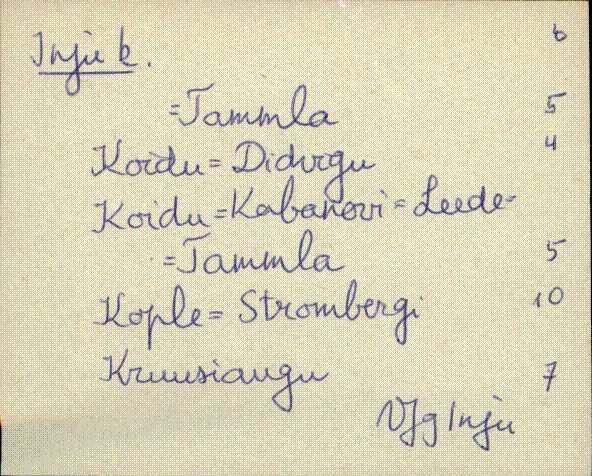 6
Inju k.
=Tammla 5
Koidu=Didvigu 4
Koidu=Kabanovi=Leede-
=Tammla 5
Kople=Strombergi 10
Kruusiaugu 7
VJg Inju